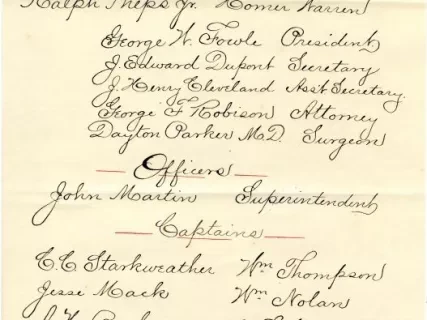 Ralph Phelps Jr. Homer Warren
George W. Fowle President
J. Edward Dupont Secretary
J. Henry Cleveland Ass't Secretary.
George F Robison Attorney
Dayton Parker M.D. Surgeon
Officers
John Martin Superintendent
Captains
C.C. Starkweather Wm Thompson
Jesse Mack Wm Nolan